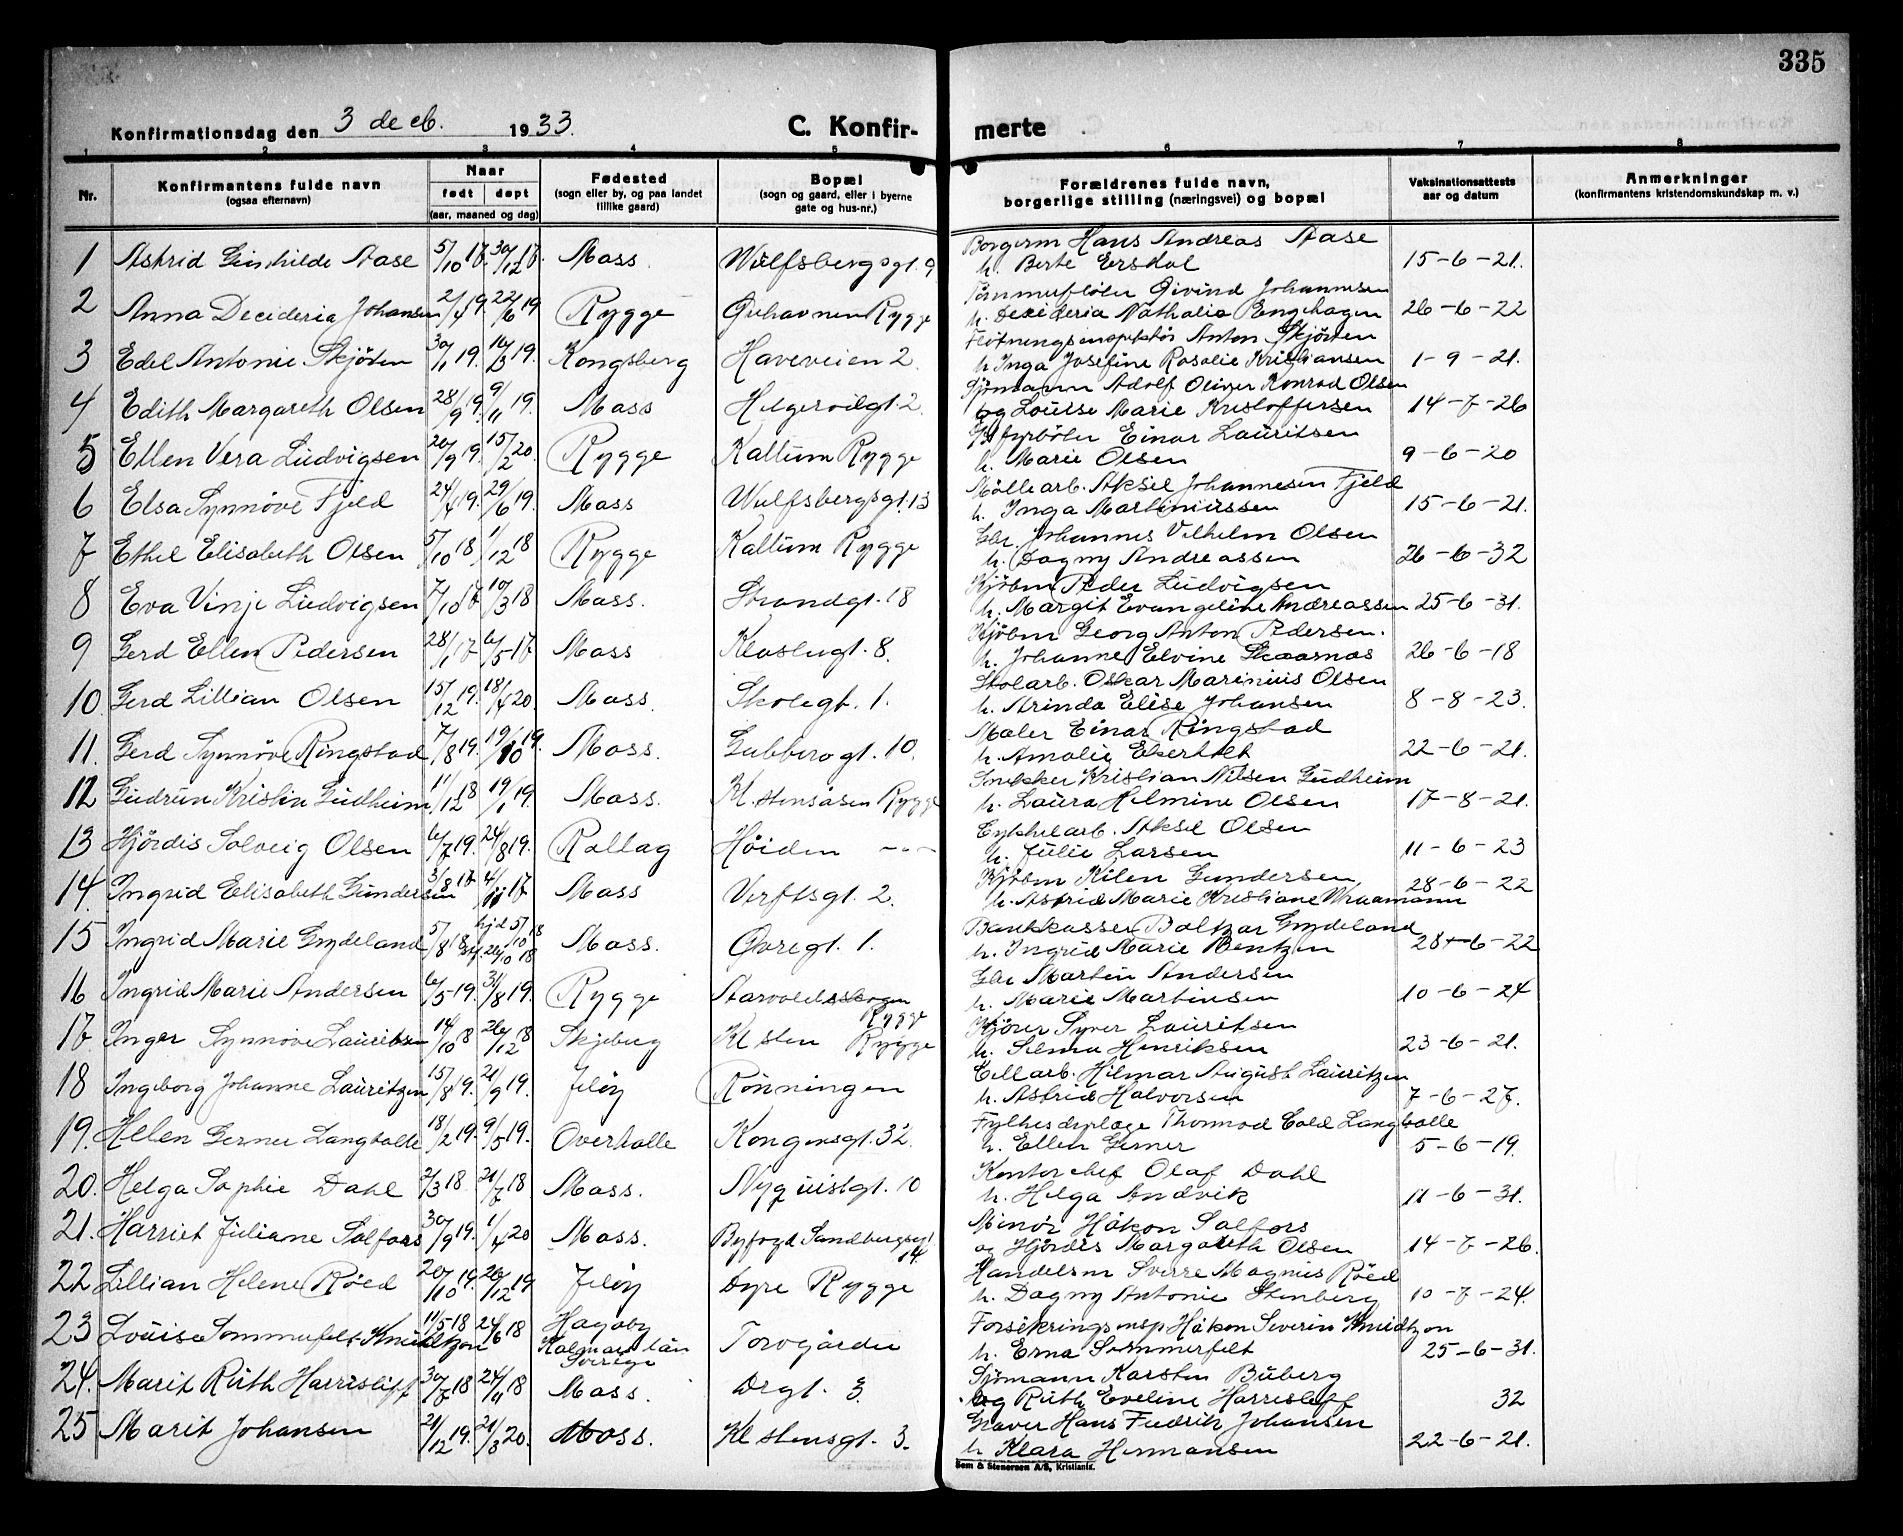 335
Konfirmationsdag den 3 decb. 1933. C. Konfir- merte
1 2 3 4 5 6 7 8
Nr. Konfirmantens fulde navn (ogsaa efternavn) Naar født døpt (aar, maaned og dag) Fødested (sogn eller by, og paa landet tillike gaard) Bopæl (sogn og gaard, eller i byerne gate og hus-nr.) Forældrenes fulde navn, borgerlige stilling (næringsvei) og bopæl Vaksinationsattests aar og datum Anmerkninger (konfirmantens kristendomskundskap m. v.)
1 Astrid Aase 5/10 17. 30/12 17. Moss. Wulfsbergsgt. 9 Borgerm Hans Andreas Aase
h. Berte Ersdal 15-6-21.
2 Anna Decideria Johansen 2/4 19. 22/6 19 Rygge Rygge Øivind Johannesen
h. Decideria Nathalia Bengehagen 26-6-22
3 Edel Antonie Skjörten 30/1 19. 16/3 19. Kongsberg Haveveien 2. Flötningsinspektör Anton Skjörten
h Inga Josefine Rosalie Kristiansen 1-9-21.
4 Edith Margareth Olsen 28/9 19. 9/11 19. Moss Helgerödgt. 2. Sjömann Adolf Oliver Konrad Olsen
og Louise Marie Kristoffersen 14-7-26
5 Ellen Vera Ludvigsen 20/9 19. 15/2 20. Rygge Kallum Rygge fyrböter Einar Lauritsen
h. Marie Olsen 9-6-20
6 Elsa Synnöve Fjeld 24/4 19. 29/6 19. Moss Wulfsbergsgt. 13 Möllearb. Aksel Johannesen Fjeld
h. Inga Martiniussen 15-6-21.
7 Ethel Elisabeth Olsen 5/10 18 1/12 18 Rygge Kallum Rygge Gbr. Johannes Vilhelm Olsen
h. Dagny Andreassen 26-6-32
8 Eva Vinje Ludvigsen 7/10 17 10/3 18 Moss. Strandgt. 18 Kjöbm Peder Ludvigsen
h. Margit Evangeline Andreassen 25-6-31.
9 Gerd Ellen Pedersen 28/1 17 6/5 17 Moss Klostergt. 8. Kjöbm Georg Anton Pedersen.
h. Johanne Elvine Skaarnæs 26-6-18
10. Gerd Lillian Olsen 15/12 19. 18/4 20. Moss. Skolegt. 1. Stolarb. Oskar Marinius Olsen
h. Arinda Elise Johansen 8-8-23.
11. Gerd Synnöve Ringstad 7/8 19. 19/10 19. Moss. Gubberogt. 10. Maler Einar Ringstad
h. Amalie 22-6-21.
12 Gudrun Kristin Gudheim 11/12 18 19/1 19. Moss. Kl. stensåsen Rygge Snekker Kristian Nilsen Gudheim
h. Laura Helmine Olsen 17-8-21.
13 Hjördis Solveig Olsen 6/7 19. 24/8 19. Rollag Höiden -"- Cykkelarb. Aksel Olsen
h. Julie Larsen 11-6-23
14. Ingrid Elisabeth Gundersen 3/8 17 4/11 17 Moss Verftsgt. 2. Kjöbm Kilen Gundersen
h. Astrid Marie Kristiane Wraamann 28-6-22
15 Ingrid Marie Grydeland 5/8 18 hjd 5/10 18 26/10 18 Moss. Øvregt. 1. Bankkasser Baltzar Grydeland
h. Ingrid Marie Bentzen 28-6-22
16 Ingrid Marie Andersen 6/5 19. 31/8 19. Rygge Starvoldskogen Rygge Gbr Martin Andersen
h. Marie Martinsen 10-6-24
17. Inger Synnöve Lauritsen 14/10 18 26/12 18 Skjeberg Kl sten Rygge Kjörer Syver Lauritsen
h. Selma Henriksen 23-6-21.
18 Ingeborg Johanne Lauritzen 15/8 19. 21/9 19. Jelöy Rönningen Cellarb. Hilmar August Lauritzen
h. Astrid Halvorsen 7-6-27.
19. Helen Gerner Langballe 18/2 19. 9/5 19. Overhalle Kongensgt. 32. Fylkesdyrlæge Thormod Cold Langballe
h. Ellen Gerner 5-6-19.
20. Helga Sophie Dahl 2/3 18. 21/7 18 Moss. Nyquistgt. 10 Kontorchef Olaf Dahl
h. Helga Andvik 11-6-31.
21. Harriet Juliane Solfors 30/9 19. 1/4 20 Moss. Byfogd Sandbergsgt 14. Minör Håkon Solfors
og Hjördis Margareth Olsen 14-7-26.
22 Lillian Helene Röed 20/10 19. 26/12 19 Jelöy Dyre Rygge Handelsm Sverre Magnus Röed
h. Dagny Antonie Stenberg 10-7-24.
23 Louise Sommerfelt Knudtzon 11/5 18 24/6 18 Hagaby Kalmar län Sverige Torvgården Forsikringsinsp Håkon Severin Knudtzon
h. Erna Sommerfelt 25-6-31.
24. Marit Ruth Harrisleff 30/7 18 24/11 18 Moss. Drgt. 3. Sjömann Karsten Buberg
og Ruth Eveline Harrisleff 32
25 Marit Johansen 21/12 19. 21/3 20. Moss. Kl stensgt. 3. Graver Hans Fredrik Johansen
h Klara Hermansen 22-6-21.
Sem & Stenersen A/S, Kristiania.